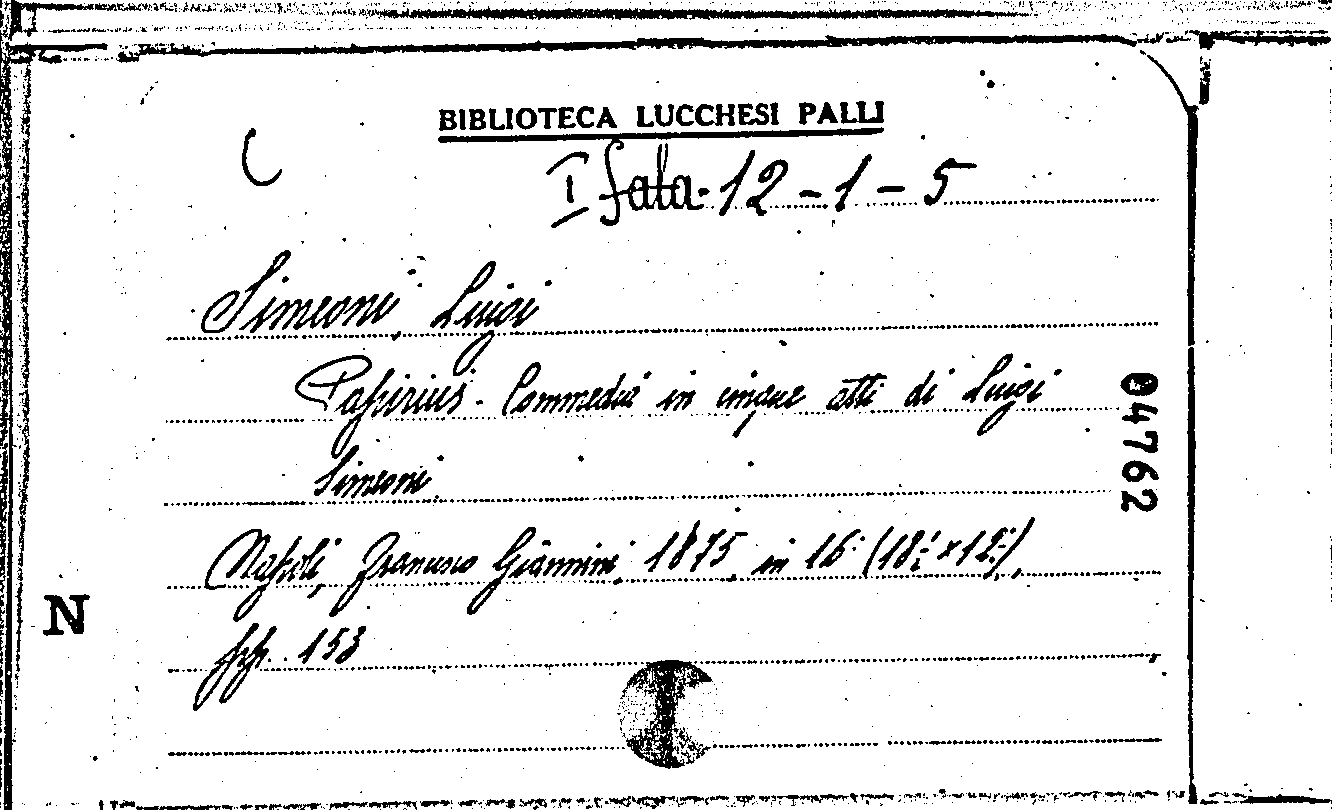 BIBLIOTECA LUCCHESI PALLI
C
I Sala 12-1-5
Simeoni, Luigi
Papirius - Commedia in cinque atti di Luigi
Simeoni.
04762
Napoli, Francesco Giannini, 1875, in 16° (18,½ x 12,½),
N
pp. 153